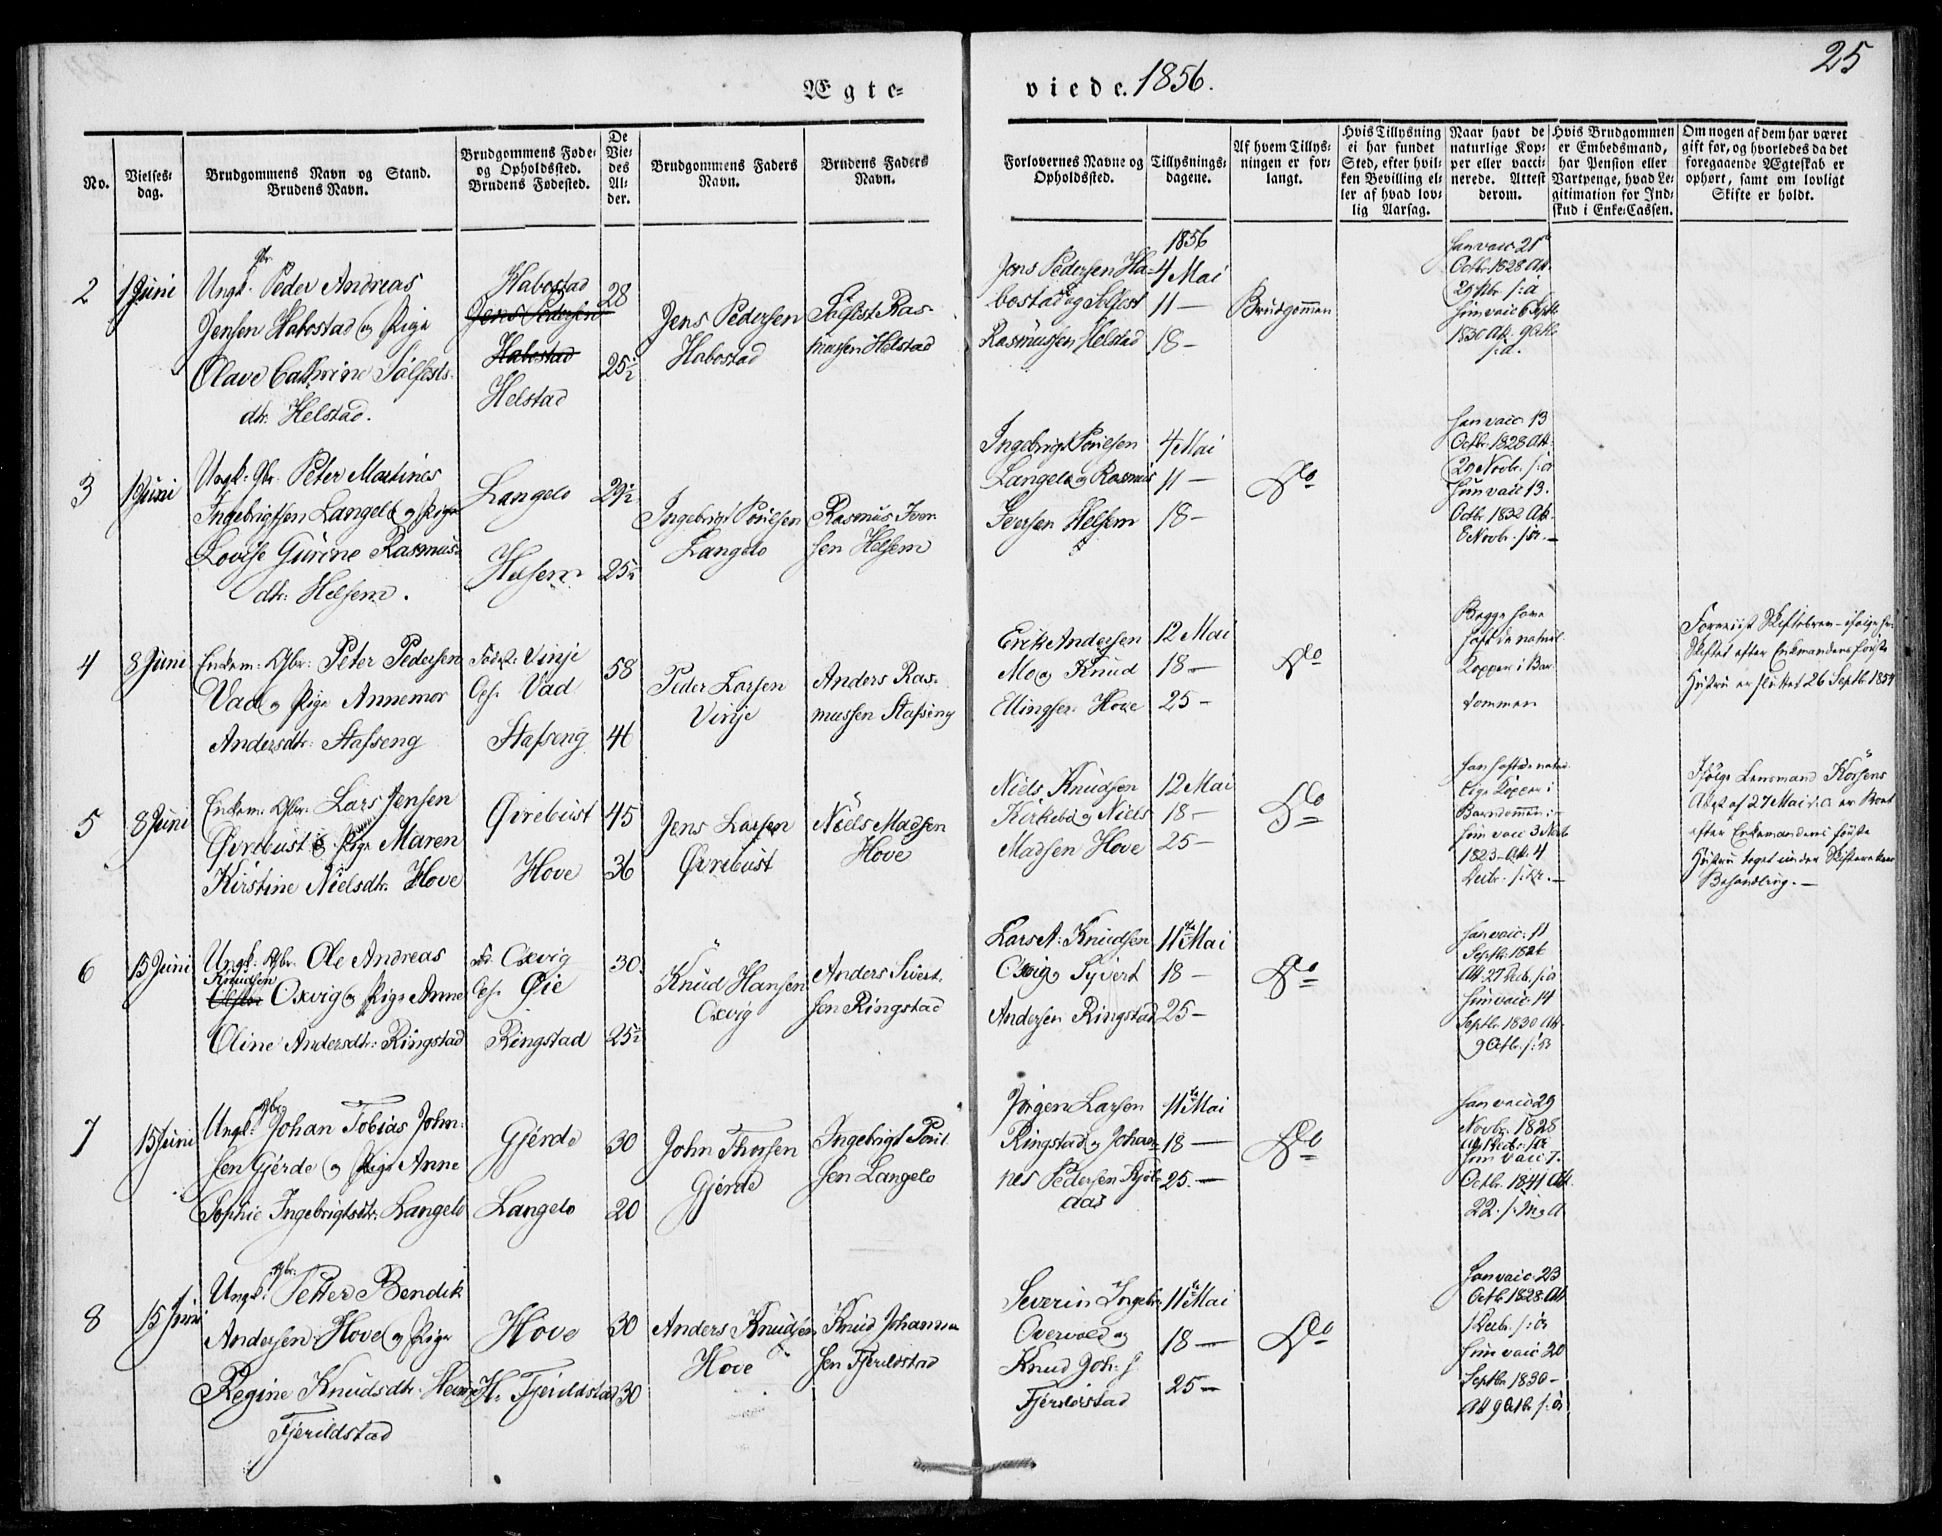 25
Ægte-
viede. 1856.
No.
Vielses-
dag.
Brudgommens Navn og Stand.
Brudens Navn.
Brudgommens Føde-
og Opholdssted.
Brudens Fødested.
De
Vie-
des
Al-
der.
Brudgommens Faders
Navn.
Brudens Faders
Navn.
Forlovernes Navne og
Opholdssted.
Tillysnings-
dagene.
Af hvem Tillys-
ningen er for-
langt.
Hvis Tillysning
ei har fundet
Sted, efter hvil-
ken Bevilling el-
ler af hvad lov-
lig Aarsag.
Naar havt de
naturlige Kop-
per eller vacci-
nerede. Attest
derom.
Hvis Brudgommen
er Embedsmand,
har Pension eller
Vartpenge, hvad Le-
gitimation for Ind-
skud i Enke-Cassen.
Om nogen af dem har været
gift før, og hvorledes da det
foregaaende Ægteskab er
ophørt, samt om lovligt
Skifte er holdt.
2
1 Juni
Ungk. Gbr. Peder Andreas
Jensen Habostad og Pige
Olave Cathrine Sølfests-
dtr. Helstad.
Habostad
Jens Pedersen
Habostad
Helstad
28
25½
Jens Pedersen
Habostad
Sølfest Ras-
mussen Helstad
Jens Pedersen Ha-
bostad og Sølfest
Rasmussen Helstad
1856
4 Mai
11 —
18 —
Brudgommen
Han vacc. 21
Octbr. 1828 Att.
29 s: a
Hun vacc 6 Septb.
1830 Att. 9 Octb.
s: a.
3
1 Juni
Ungk. Gbr. Peter Martinus
Ingebrigtsen Langelo og Pige
Lovise Gurine Rasmus-
dtr. Helsem.
Langelo
Helsem
29½
25½
Ingebrigt Poulsen
Langelo
Rasmus Iver
sen Helsem
Ingebrigt Poulsen
Langelo og Rasmus
Iversen Helsem
4 Mai
11 —
18 —
Do
Han vacc. 13
Octbr. 1828 Att.
29 Novbr. s: a
Hun vacc 13.
Octbr. 1832 Att.
8 Novbr. s: a. —
4
8 Juni
Enkem: Gbr: Peter Pedersen
Vad og Pige Annemor
Andersdtr: Stafseng
Fødest: Vinje
Oph. Vad
Stafseng
58
41
Peder Larsen
Vinje
Anders Ras-
mussen Stafseng
Erik Andersen
Mo og Knud
Ellingsen Hove
12 Mai
18 —
25 —
Do
Begge have
havt de naturl.
Kopper i Bar
dommen
Foreviist Skiftebrev ifølge hvi
Skiftet efter Enkemandens første
Hustru er sluttet 26 Septb. 1854
5
8 Juni
Enkem: Gbr: Lars Jensen
Øvrebust og Pige Maren
Kirstine Nielsdtr. Hove
Øvrebust
Hove
45
36
Jens Larsen
Øvrebust
Niels Madsen
Hove
Niels Knudsen
Kirkebø og Niels
Madsen Hove
12 Mai
18 —
25 —
Do
Han havt de natur-
lige Kopper i
Barndommen: —
Hun vacc 3 Novb
1823 — Att. 4
Decbr. s: A. —
Ifølge Lensmand Korsens
Attest af 27 Mai d. a. er Boet
efter Enkemandens første
Hustru taget under Skifterettens
Behandling. —
6
15 Juni
Ungk: Gbr. Ole Andreas
Knudsen
Oxvig og Pige Anne
Oline Andersdtr: Ringstad
Fd. Oxvig
Oph. Øie
Ringstad
30
25½
Knud Hansen
Oxvig
Anders Sivert-
sen Ringstad
Lars A: Knudsen
Oxvig og Syvert
Andersen Ringstad
11te Mai
18 —
25 —
Do
Han vacc. 11
Septb. 1826
Att. 27 s: a
Hun vacc. 14
Septb. 1830 Att.
9 Octb. s: a
7
15 Juni
Ungk. Gbr. Johan Tobias John-
sen Gjerde og Pige Anne
Sophie Ingebrigtsdtr. Langelo
Gjerde
Langelo
30
20
John Thorsen
Gjerde
Ingebrigt Poul-
sen Langelo
Jørgen Larsen
Ringstad og Johan-
nes Pedersen Kjøl-
aas
11te Mai
18 —
25. —
Do
Han vacc 29
Novbr. 1828
Att 1 Decbr. s: A
Hun vacc 7.
Octbr. 1841 Att.
22. s: M. og A
8
15 Juni
Ungk. Gbr. Petter Bendik
Andersen Hove og Pige
Regine Knudsdtr. Hen
Fjerildstad
Hove
H. Fjerildstad
30
30
Anders Knudsen
Hove
Knud Johannes
sen Fjerildstad
Severin Ingebr
Overvold og
Knud Joh. s.
Fjerildstad
11te Mai
18 —
25 —
Do
Han vacc 23
Octb. 1828 Att
1 Decbr. s: a
Hun vacc 20
Septb. 1830 —
Att 9 Octb. s: a